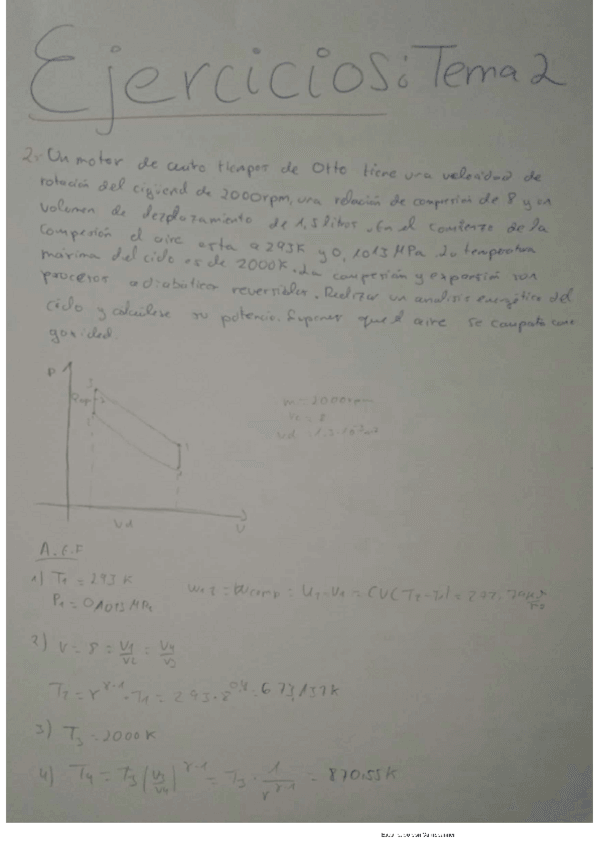 Ejercicios: Tema 2
2. Un motor de cuatro tiempos de Otto tiene una velocidad de
rotación del cigüeñal de 2000rpm, una relación de compresión de 8 y un
volumen de desplazamiento de 1,5 litros. En el comienzo de la
compesión el aire esta a 293K y 0,1013 MPa. La temperatura
máxima del ciclo es de 2000K. La compesión y expansión son
procesos adiabáticos reversibles. Realizar un analisis energético del
ciclo y calcúlese su potencia. Suponer que el aire se comporta como
gas ideal.
P
3
m = 2000rpm
= 8
Vd = 1,5·10⁻³m³
Vd
V
A.E.F
1) T1 = 293 K
P1 = 0,1013 MPa
= Wcomp = = CV(T2-T1) =
2) r = 8 = V1/V2 = V4/V3
T2 = r^γ-1 · T1 = 293·8^0,4 = 673,137K
3) T3 = 2000K
4) T4 = T3 (V3/V4)^γ-1 = T3 · 1/r^γ-1 = 870.55K